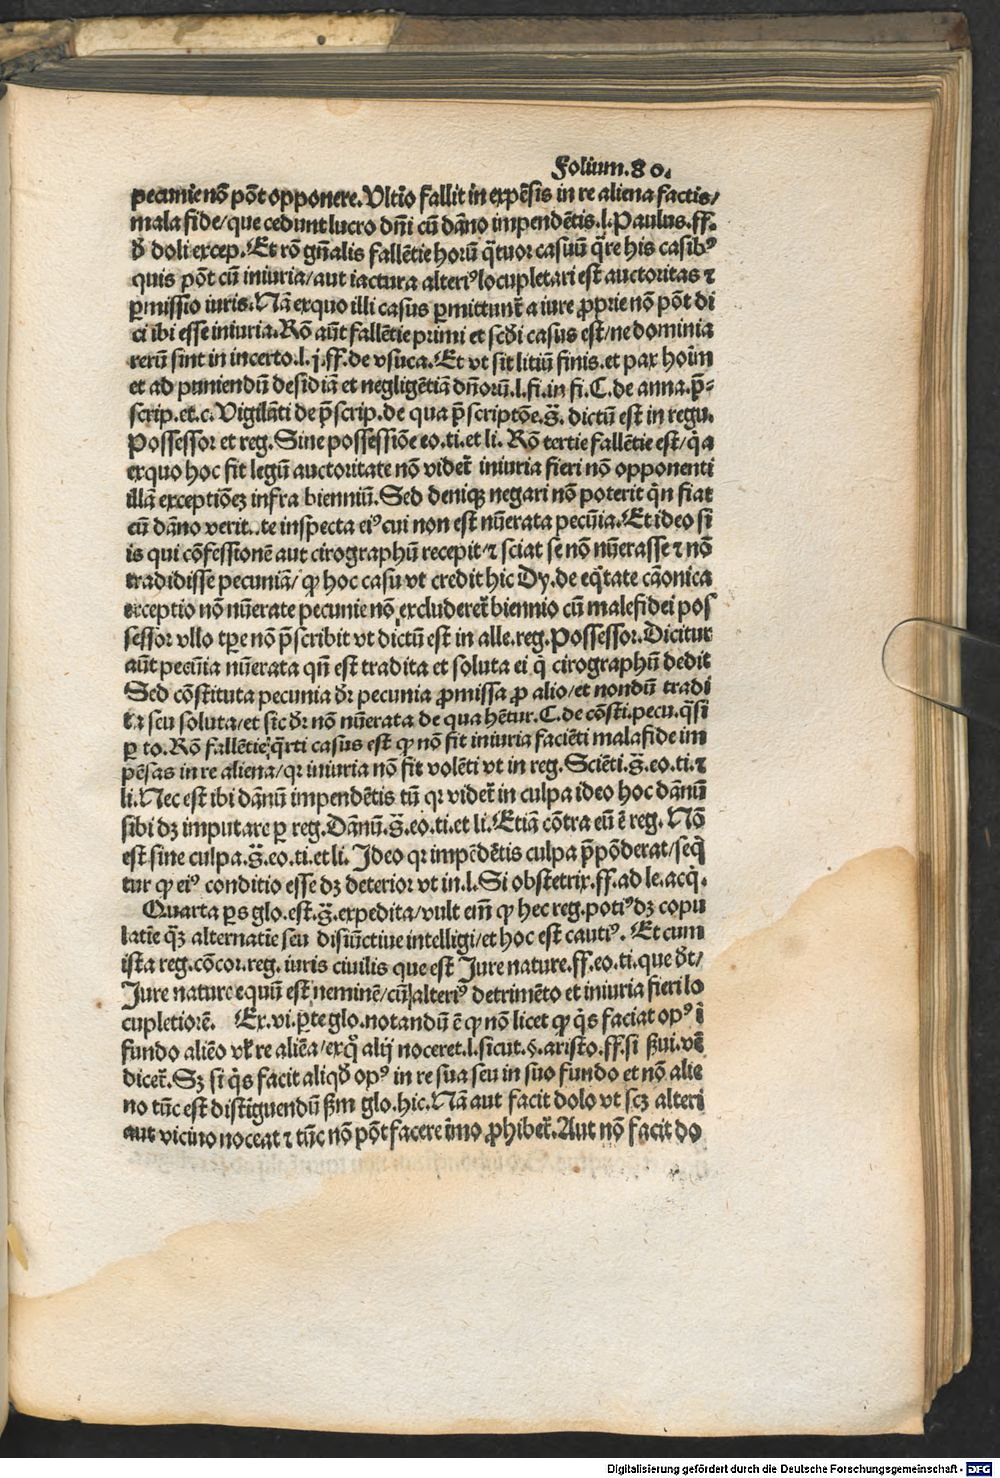 Folium.80.
pecunie nõ põt opponere. Vltio fallit in expẽsis in re aliena factis/
mala fide/que cedunt lucro dñi cũ dãno impendẽtis.l.Paulus.ff.
ꝺ̄ doli excep. Et rõ gñalis fallẽtie horũ q̃tuor casuũ q̃re his casibꝰ
quis põt cũ iniuria/aut iactura alteriꝰ locupletari est auctoritas ⁊
ꝑmissio iuris. Nã ex quo illi casus ꝑmittunt̃ a iure ꝓprie nõ põt di
ci ibi esse iniuria. Rõ aũt fallẽtie primi et scḋi casus est/ne dominia
rerũ sint in incerto.l.j.ff.de vsuca. Et vt sit litiũ finis. et pax hoĩm
et ad puniendũ desidiã et negligẽtiã dñorũ.l.fi.in fi.C.de anna.p̃-
scrip.et.c. Vigilãti de p̃scrip.de qua p̃scriptõe.s̃. dictũ est in regu.
Possessor et reg. Sine possessiõe eo.ti.et li. Rõ tertie fallẽtie est/q̃a
ex quo hoc fit legũ auctoritate nõ videt̃ iniuria fieri nõ opponenti
illã exceptiõeꝫ infra bienniũ. Sed deniqꝫ negari nõ poterit q̃n fiat
cũ dãno verit..te inspecta eiꝰ cui non est nũerata pecũia. Et ideo si
is qui cõfessionẽ aut cirographũ recepit/⁊ sciat se nõ nũerasse ⁊ nõ
tradidisse pecuniã/ ꝙ hoc casu vt credit hic Dy.de eq̃tate cãonica
exceptio nõ nũerate pecunie nõ excluderet̃ biennio cũ malefidei pos
sessor vllo tꝑe nõ p̃scribit vt dictũ est in alle.reg.Possessor. Dicitur
aũt pecũia nũerata qñ est tradita et soluta ei q̃ cirographũ dedit
Sed cõstituta pecunia ꝺ̄r pecunia ꝓmissa ꝓ alio/et nondũ tradi
ta seu soluta/et sic ꝺ̄r nõ nũerata de qua hẽtur.C.de cõsti.pecu.q̃si
ꝑ to. Rõ fallẽtie q̃rti casus est ꝙ nõ fit iniuria faciẽti mala fide im
pẽsas in re aliena/qr iniuria nõ fit volẽti vt in reg. Sciẽti.s̃.eo.ti.⁊
li. Nec est ibi dãnũ impendẽtis tũ qr videt̃ in culpa ideo hoc dãnũ
sibi dꝫ imputare ꝑ reg.Dãnũ.s̃.eo.ti.et li. Etiã cõtra eũ ẽ reg. Nõ
est sine culpa.s̃.eo.ti.et li. Ideo qr impẽdẽtis culpa p̃põderat/seq̃
tur ꝙ eiꝰ conditio esse dꝫ deterior vt in.l.Si obstetrix.ff.ad le.acq̃.
Quarta ꝑs glo.est.s̃.expedita/vult eñi ꝙ hec reg.potiꝰ dꝫ copu
latĩe q̃ꝫ alternatĩe seu disiũctiue intelligi/et hoc est cautiꝰ. Et cum
ista reg.cõcor.reg. iuris ciuilis que est Jure nature.ff.eo.ti.que ꝺ̄t/
Jure nature equũ est neminẽ/cũ alteriꝰ detrimẽto et iniuria fieri lo
cupletiorẽ. Ex.vi.ꝑte glo.notandũ ẽ ꝙ nõ licet ꝙ q̃s faciat opꝰ ĩ
fundo aliẽo vl̃ re aliẽa/ex q̃ alij noceret.l.sicut.§.aristo.ff.si ẞui.vẽ
dicet̃. Sꝫ si q̃s facit aliqḋ opꝰ in re sua seu in suo fundo et nõ alie
no tũc est distiguendũ ẞm glo.hic. Nã aut facit dolo vt scꝫ alteri
aut vicino noceat ⁊ tũc nõ põt facere imo ꝓhibet̃. Aut nõ facit do
Digitalisierung gefördert durch die Deutsche Forschungsgemeinschaft - DFG